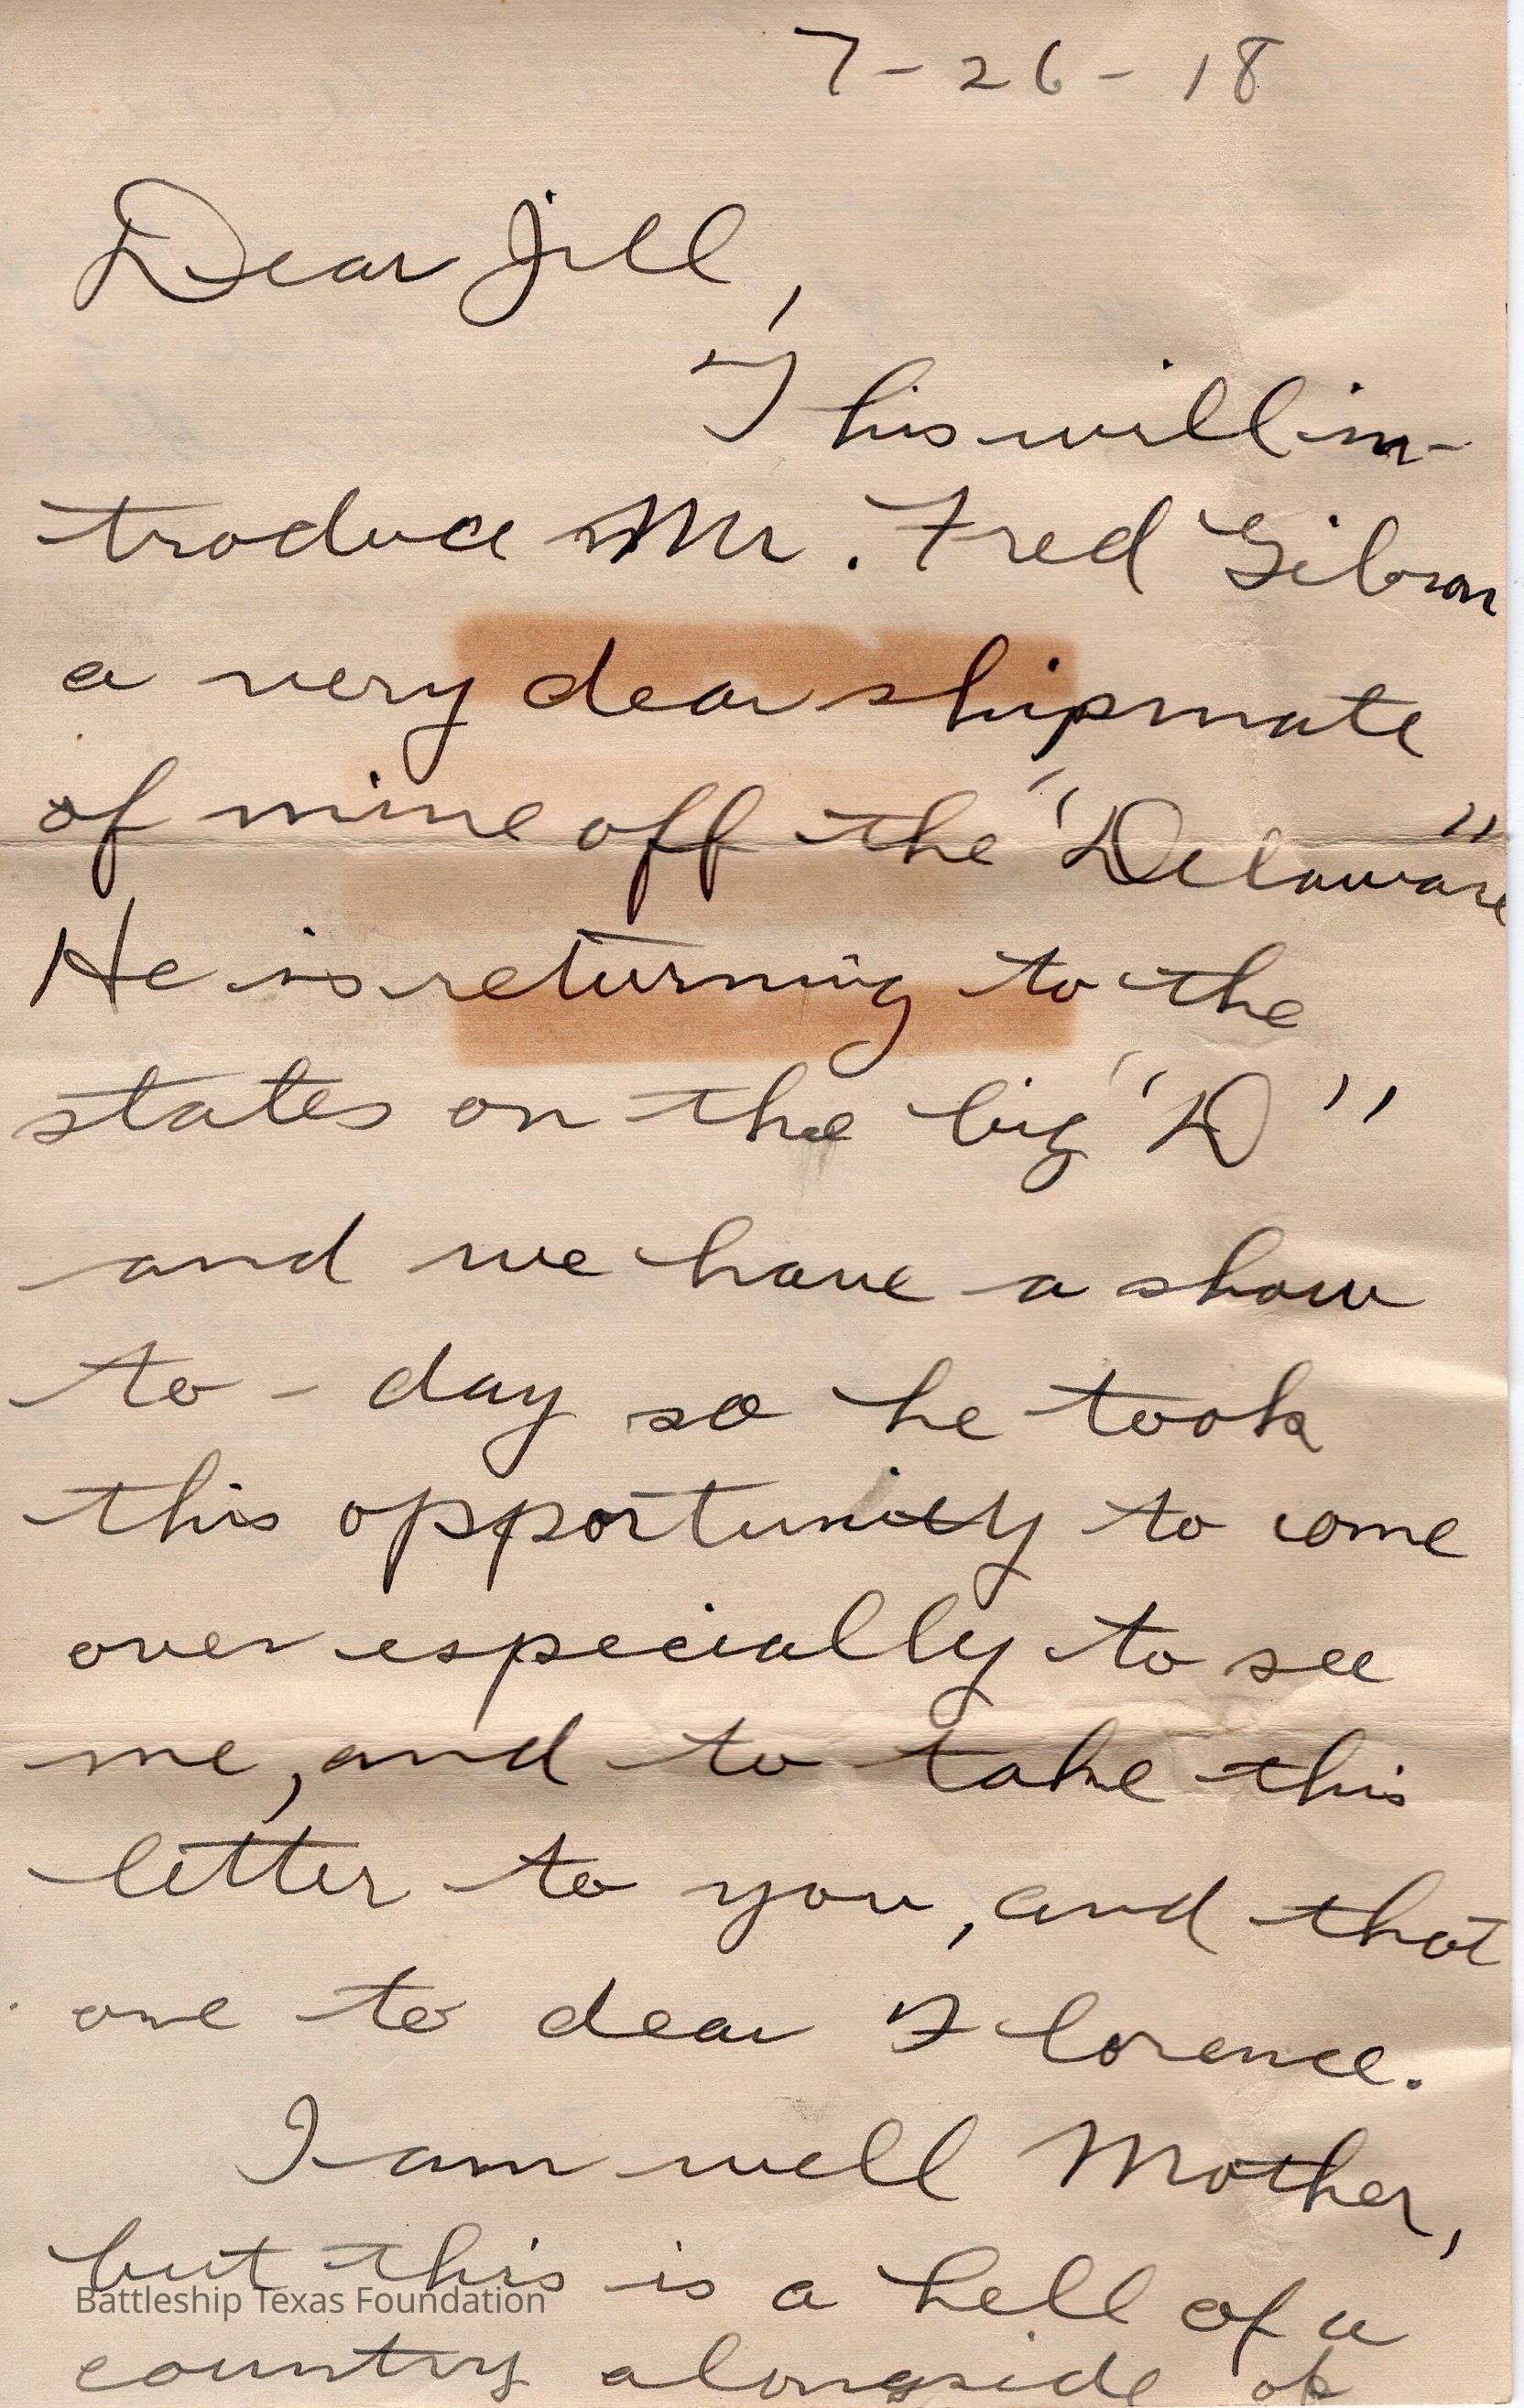 7-26-18
Dear Jill,
This will in-
troduce Mr. Fred Gibson
a very dear shipmate
of mine off the "Delaware"
He is returning to the
states on the big "D"
and we have a show
to-day so he took
this opportunity to come
over especially to see
me, and to take this
letter to you, and that
one to dear Florence.
I am well Mother,
but this is a hell of a
Battleship Texas Foundation
country alongside of